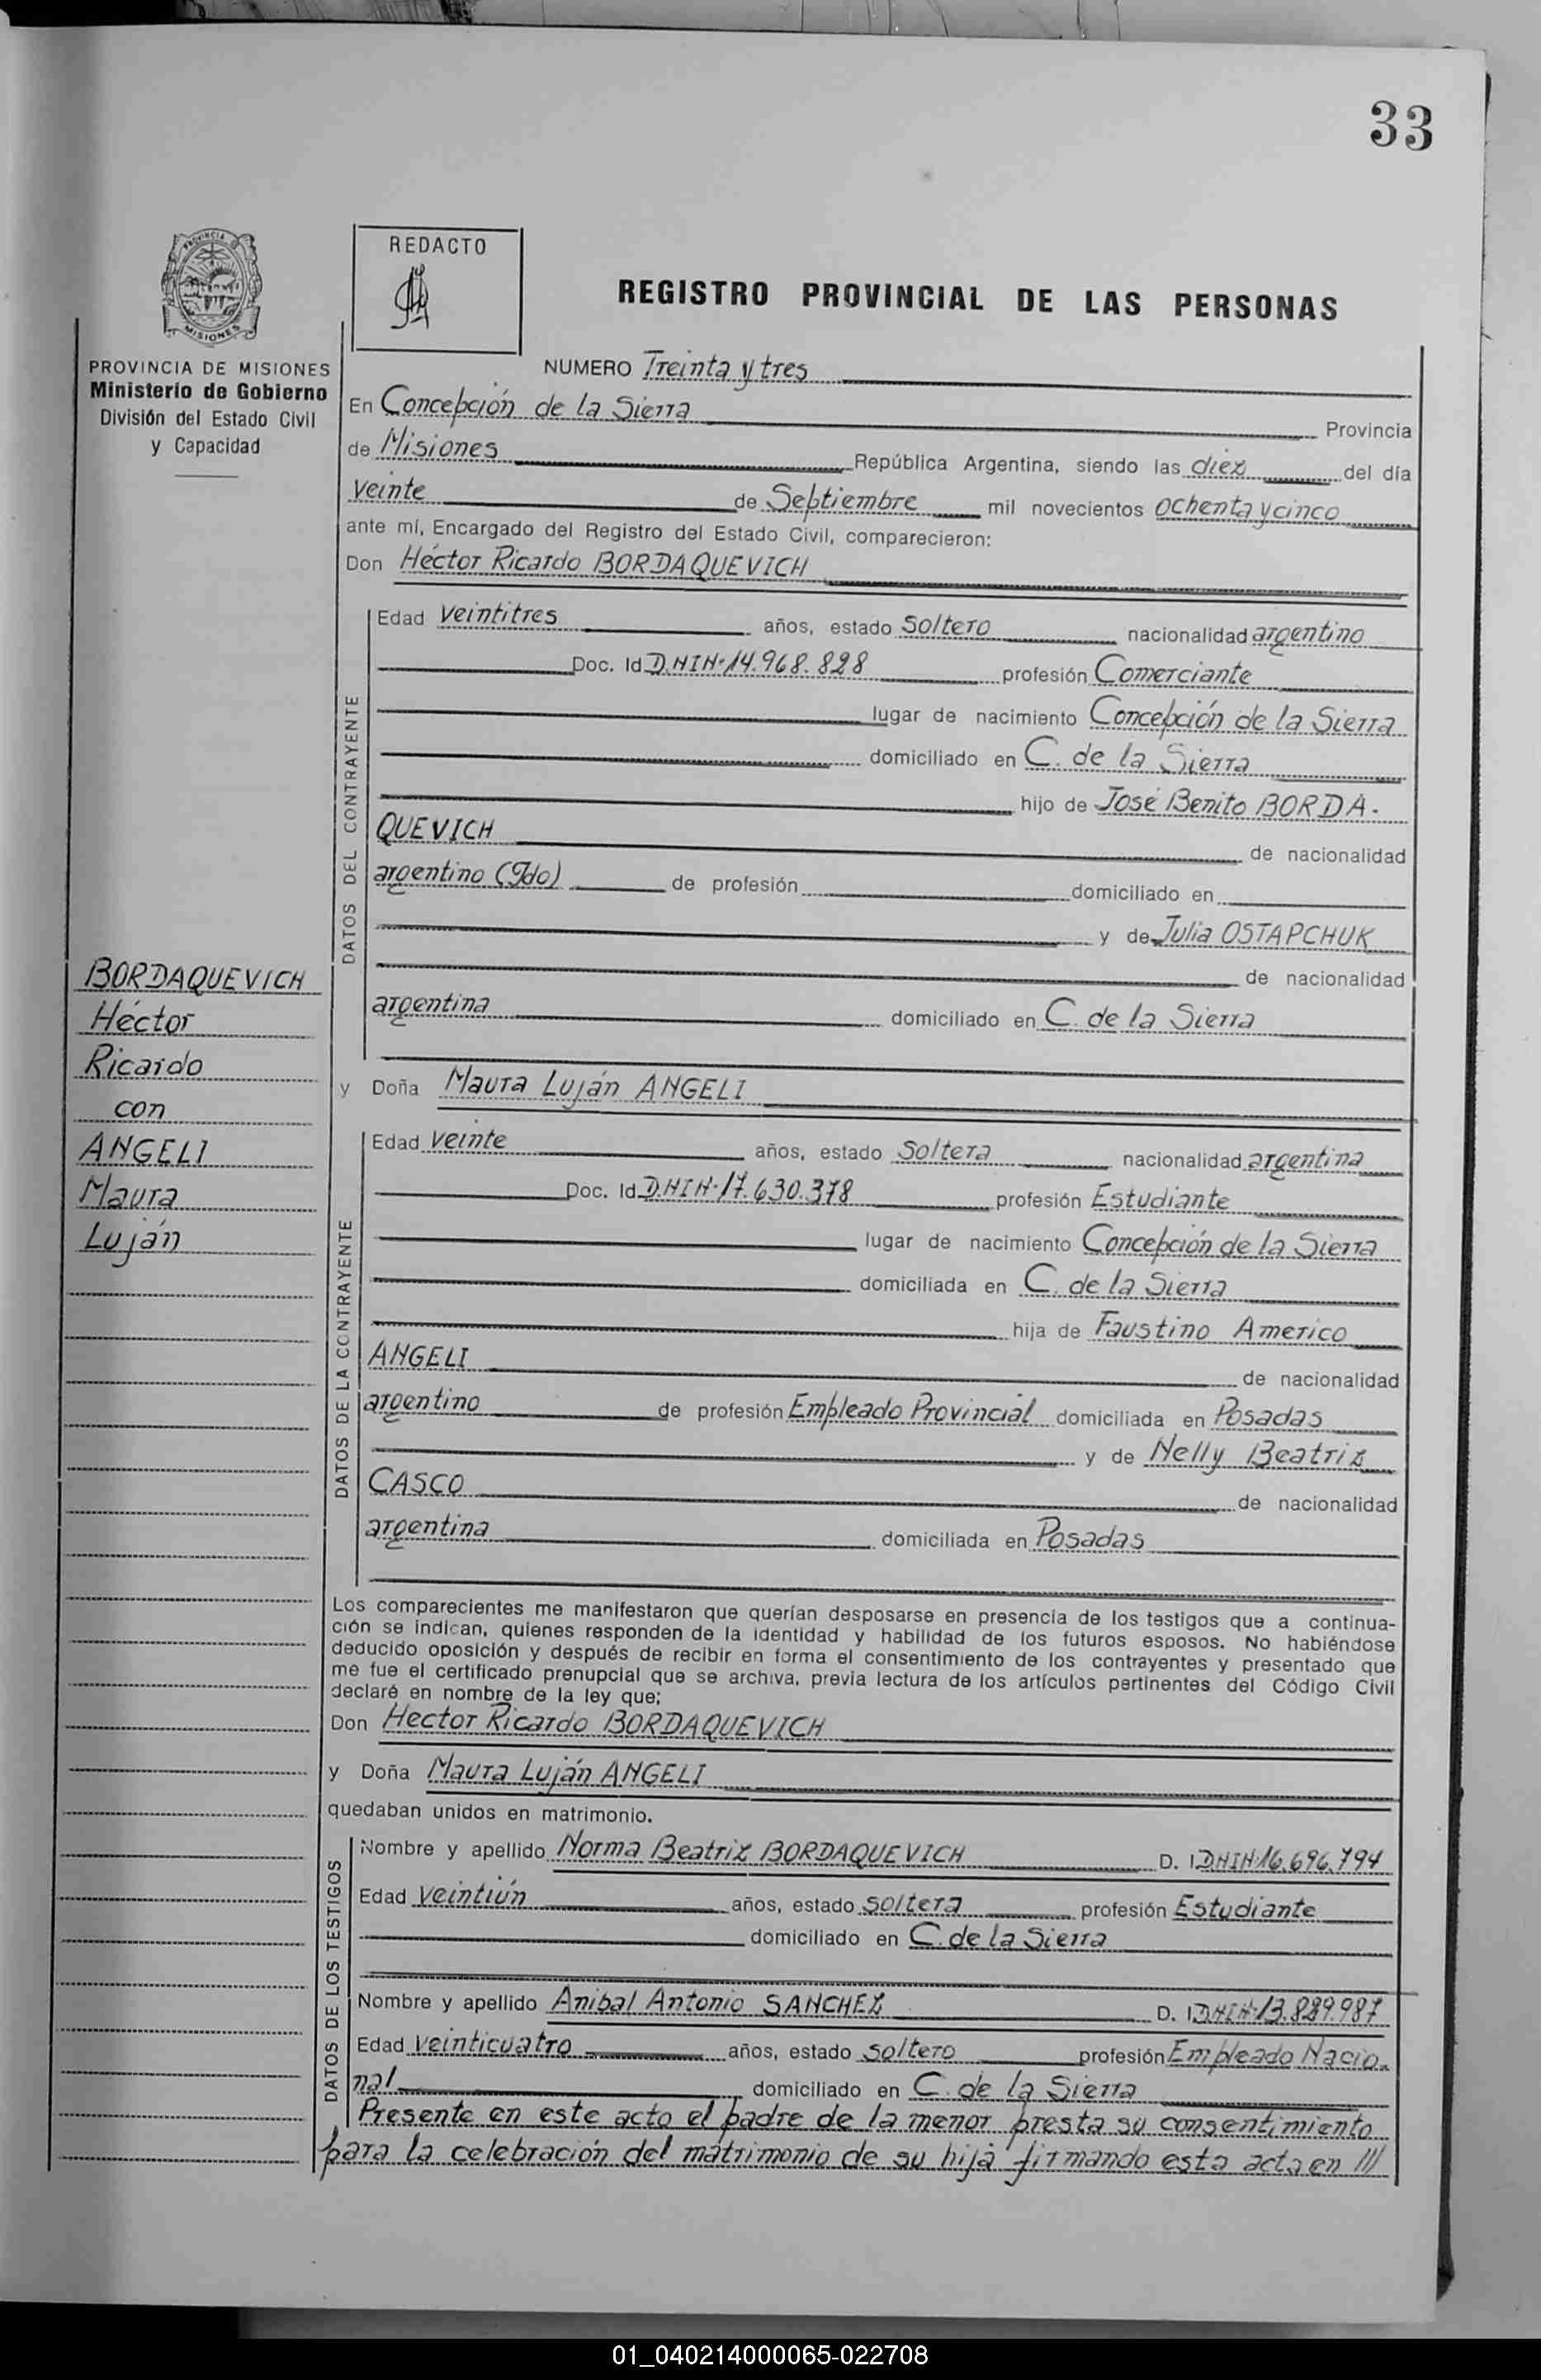 33
PROVINCIA
MISIONES
REDACTO
REGISTRO PROVINCIAL DE LAS PERSONAS
PROVINCIA DE MISIONES
Ministerio de Gobierno
División del Estado Civil
y Capacidad
NUMERO Treinta y tres
En Concepción de la Sierra Provincia
de Misiones República Argentina, siendo las diez del día
veinte de Septiembre mil novecientos ochenta y cinco
ante mí, Encargado del Registro del Estado Civil, comparecieron:
Don Héctor Ricardo BORDAQUEVICH
DATOS DEL CONTRAYENTE
Edad veintitres años, estado soltero nacionalidad argentino
Doc. Id D.NIN·14.968.828 profesión Comerciante
lugar de nacimiento Concepción de la Sierra
domiciliado en C. de la Sierra
hijo de José Benito BORDA-
QUEVICH de nacionalidad
argentino (Fdo) de profesión domiciliado en
y de Julia OSTAPCHUK
de nacionalidad
argentina domiciliado en C. de la Sierra
BORDAQUEVICH
Héctor
Ricardo
con
ANGELI
Maura
Luján
y Doña Maura Luján ANGELI
DATOS DE LA CONTRAYENTE
Edad veinte años, estado Soltera nacionalidad argentina
Doc. Id D.NIN·17.630.378 profesión Estudiante
lugar de nacimiento Concepción de la Sierra
domiciliada en C. de la Sierra
hija de Faustino Americo
ANGELI de nacionalidad
argentino de profesión Empleado Provincial domiciliada en Posadas
y de Nelly Beatriz
CASCO de nacionalidad
argentina domiciliada en Posadas
Los comparecientes me manifestaron que querían desposarse en presencia de los testigos que a continua-
ción se indican, quienes responden de la identidad y habilidad de los futuros esposos. No habiéndose
deducido oposición y después de recibir en forma el consentimiento de los contrayentes y presentado que
me fue el certificado prenupcial que se archiva, previa lectura de los artículos pertinentes del Código Civil
declaré en nombre de la ley que;
Don Hector Ricardo BORDAQUEVICH
y Doña Maura Luján ANGELI
quedaban unidos en matrimonio.
DATOS DE LOS TESTIGOS
Nombre y apellido Norma Beatriz BORDAQUEVICH D. I DNIN·16.696.794
Edad veintiún años, estado soltera profesión Estudiante
domiciliado en C. de la Sierra
Nombre y apellido Anibal Antonio SANCHEZ D. I DNIN·13.889.987
Edad veinticuatro años, estado soltero profesión Empleado Nacio-
nal domiciliado en C. de la Sierra
Presente en este acto el padre de la menor presta su consentimiento
para la celebración del matrimonio de su hija firmando esta acta en ///
01_040214000065-022708